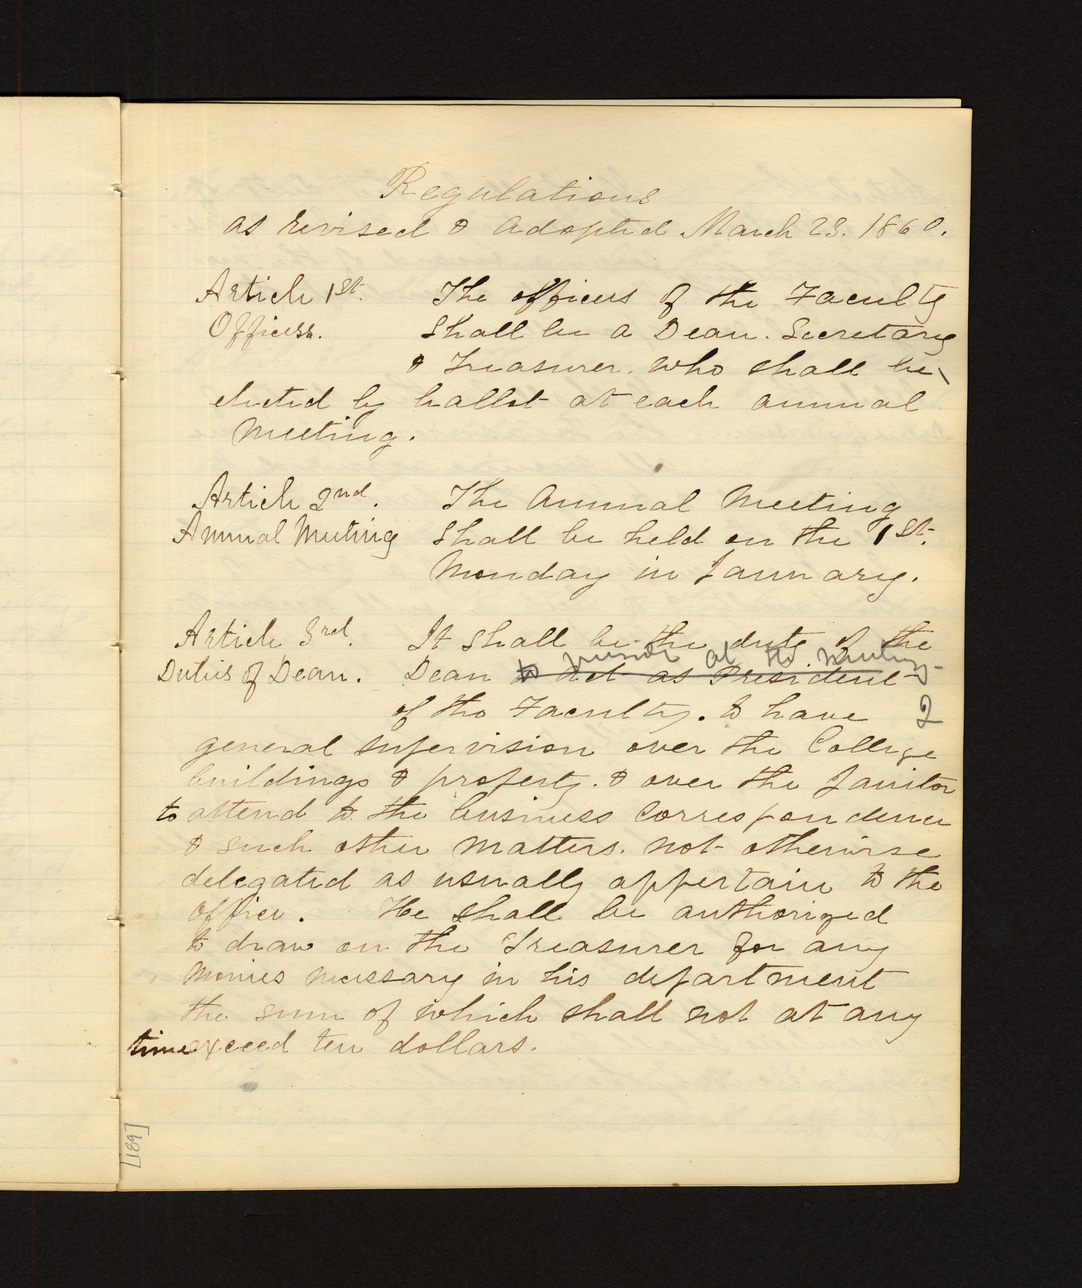 Regulations
as revised & adopted March 23. 1860.
Article 1st. The officers of the Faculty
Officers. Shall be a Dean. Secretary
& Treasurer. who shall be
elected by ballot at each annual
Meeting.
Article 2nd. The Annual Meeting
Annual Meeting Shall be held on the 1st.
Monday in January.
Article 3rd. It Shall be the duty of the
to preside at the meetings
Duties of Dean. Dean to act as President
of the Faculty. to have 2
general supervision over the College
buildings & property. & over the Janitor
to attend to the business correspondence
& such other matters. not otherwise
delegated as usually appertain to the
office. He shall be authorized
to draw on the Treasurer for any
Monies necessary in his department
the sum of which shall not at any
time exceed ten dollars.
[189]